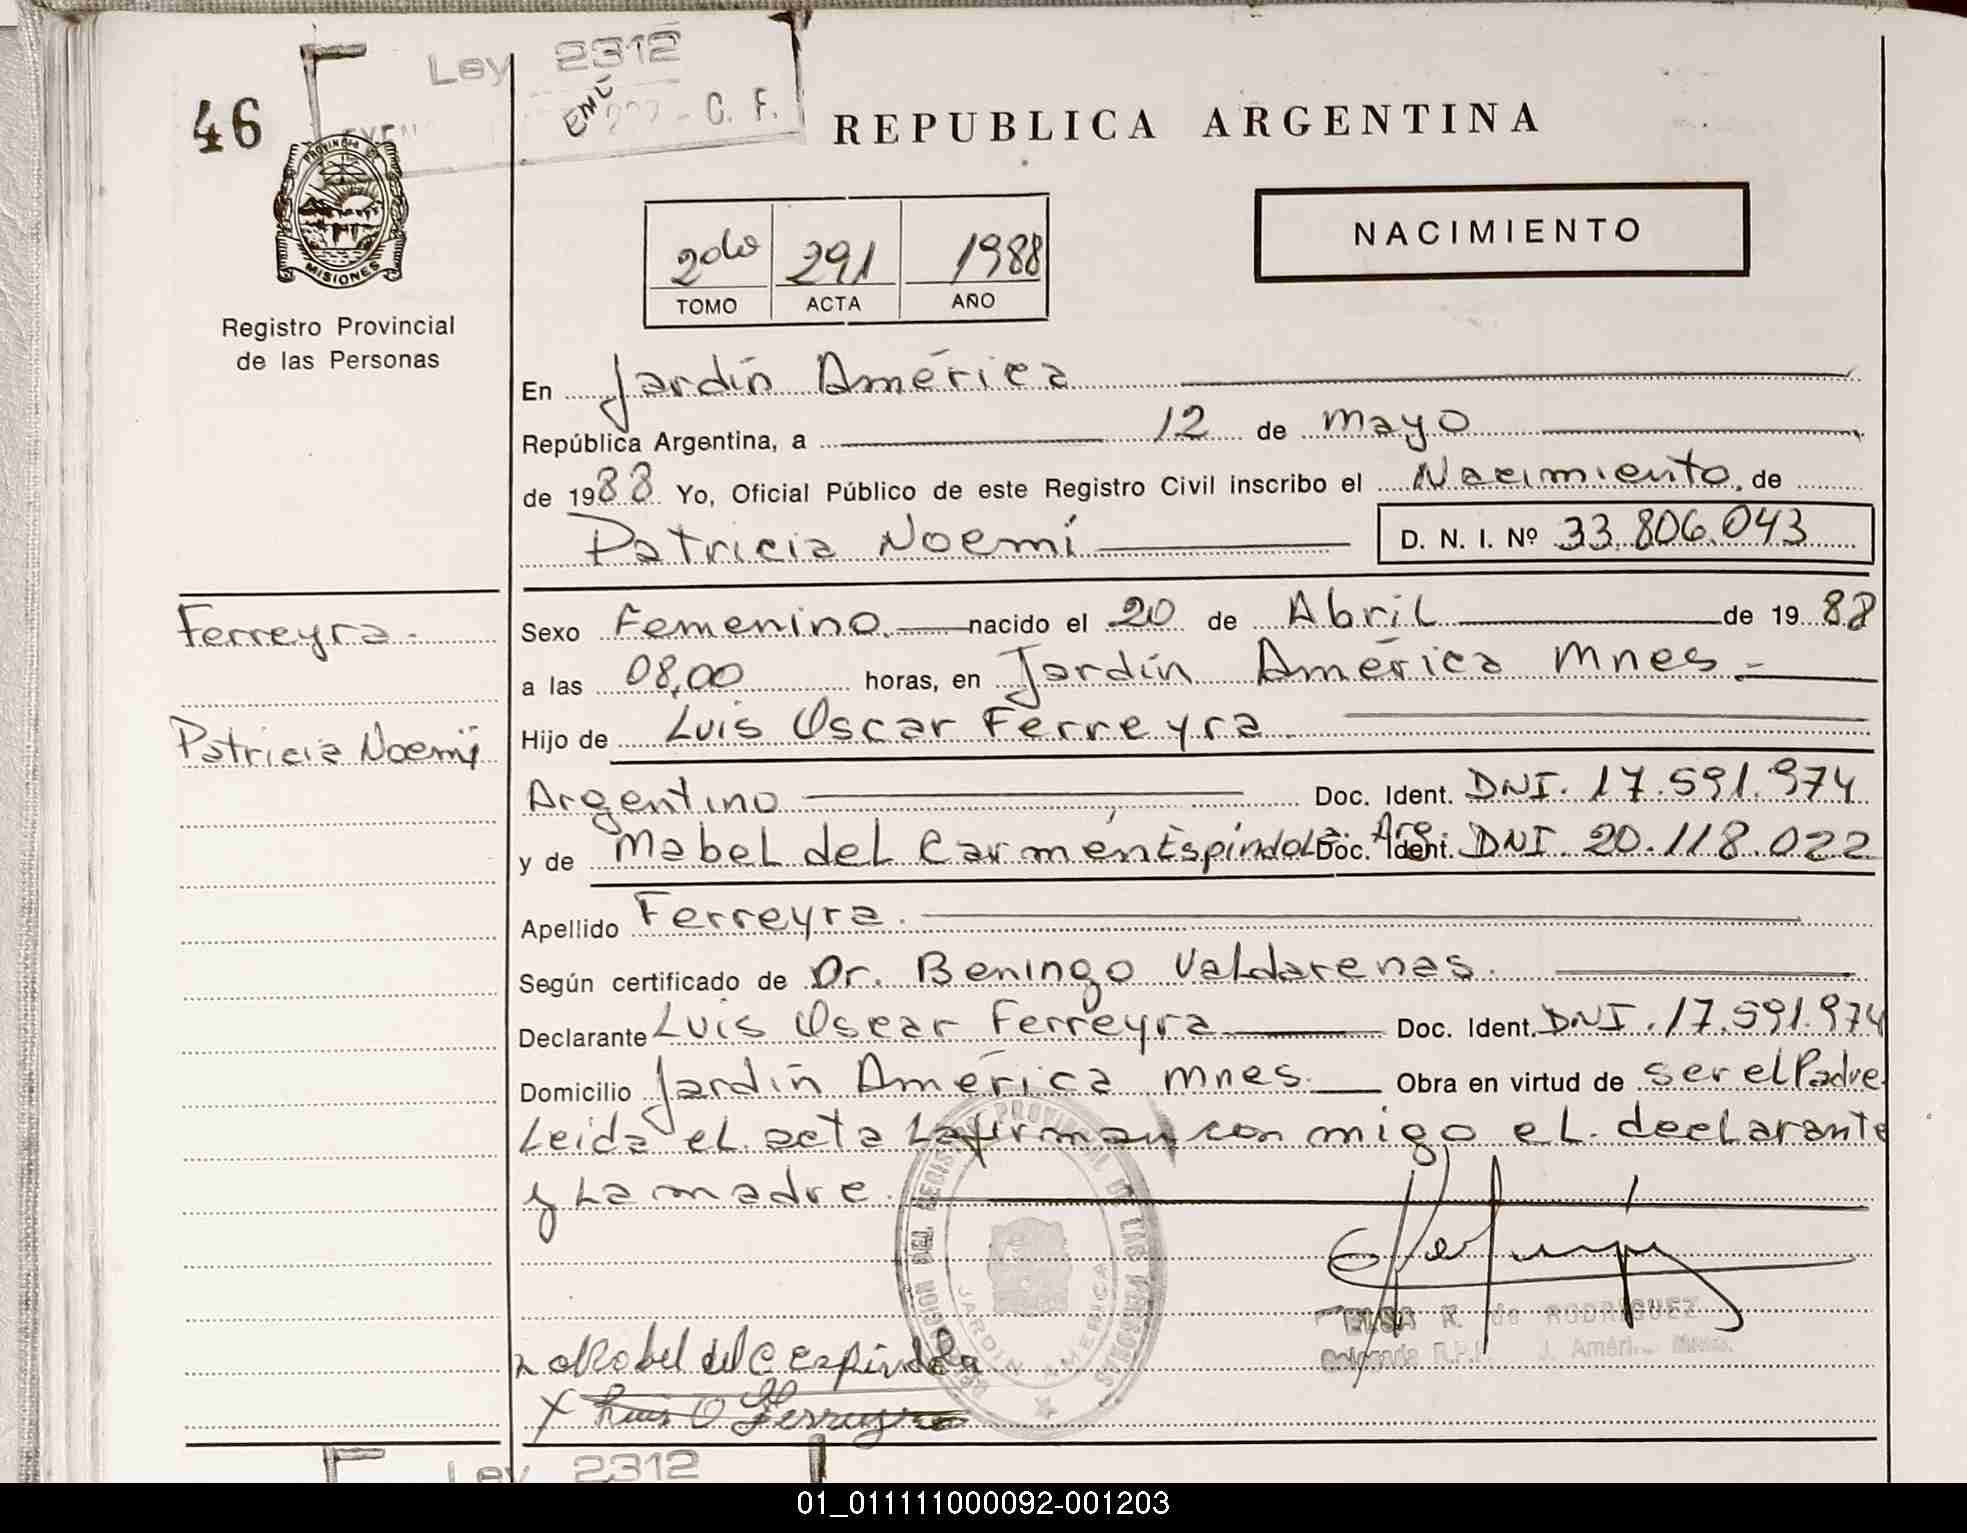 Ley 2312
46
C. F.
REPUBLICA ARGENTINA
PROVINCIA DE
MISIONES
NACIMIENTO
2do 291 1988
TOMO ACTA AÑO
Registro Provincial
de las Personas
En Jardín América
República Argentina, a 12 de mayo
de 1988 Yo, Oficial Público de este Registro Civil inscribo el Nacimiento, de
Patricia Noemí D. N. I. Nº 33.806.043
Ferreyra.
Sexo Femenino. nacido el 20 de Abril de 1988
a las 08,00 horas, en Jardín América Mnes.
Patricia Noemí
Hijo de Luis Oscar Ferreyra
Argentino Doc. Ident. DNI. 17.591.974
y de Mabel del Carmen Espíndola. Arg. Doc. Ident. DNI 20.118.022
Apellido Ferreyra.
Según certificado de Dr. Beningo Valdarenas.
Declarante Luis Oscar Ferreyra Doc. Ident. DNI. 17.591.974
Domicilio Jardín América Mnes. Obra en virtud de ser el Padre
Leida el acta La firman con migo el declarante
y La madre.
JARDIN AMERICA
ELSA K. de RODRIGUEZ
J. Améri
Mabel del C espindola
x Luis O Ferreyra
Ley 2312
01_011111000092-001203